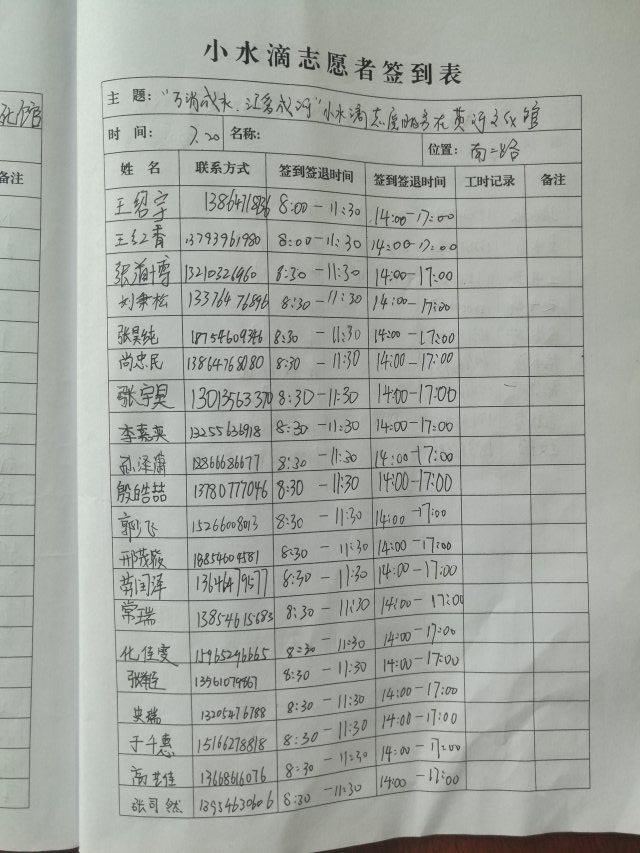 小水滴志愿者签到表
主 题: "万涓成水，江客成河"小水滴志愿服务在黄河文化馆
时 间: 7.20 名称: 位置: 南二路
姓 名 联系方式 签到签退时间 签到签退时间 工时记录 备注
王绍宇 13864718736 8:00-11:30 14:00-17:00
王红香 13793961980 8:00-11:30 14:00-17:00
张 13210326960 8:30-11:30 14:00-17:00
刘秉松 13376476896 8:30-11:30 14:00-17:00
张昊纯 18754609346 8:30-11:30 14:00-17:00
尚忠民 13864768080 8:30-11:30 14:00-17:00
张宇昊 13013563370 8:30-11:30 14:00-17:00
李嘉英 13255636918 8:30-11:30 14:00-17:00
孙泽 18866686677 8:30-11:30 14:00-17:00
殷皓喆 13780777046 8:30-11:30 14:00-17:00
郭飞 15266008013 8:30-11:30 14:00-17:00
邢茂 18854604581 8:30-11:30 14:00-17:00
苟闰泽 13646479577 8:30-11:30 14:00-17:00
常瑞 13854615683 8:30-11:30 14:00-17:00
化佳雯 15965296665 8:30-11:30 14:00-17:00
张 13961079867 8:30-11:30 14:00-17:00
央瑞 13205476788 8:30-11:30 14:00-17:00
于千惠 15166278818 8:30-11:30 14:00-17:00
高艺佳 13668616076 8:30-11:30 14:00-17:00
张可然 13954630606 8:30-11:30 14:00-17:00
备注